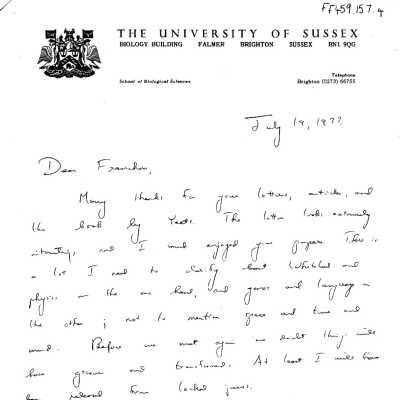 FF459.157.4
THE UNIVERSITY OF SUSSEX
BIOLOGY BUILDING FALMER BRIGHTON SUSSEX BN1 9QG
School of Biological Sciences
Telephone
Brighton (0273) 66755
July 19, 1977
Dear
Many thanks for your letters, articles, and
the book by Yeats. The latter looks extremely
interesting, and I much enjoyed your papers. There is
a lot I need to clarify about Whitehead and
physics on the one hand, and genes and language on
the other; not to mention space and time and
mind. Perhaps we meet again no doubt things will
have grown and transformed. At least I will have
been released from locked jaws.